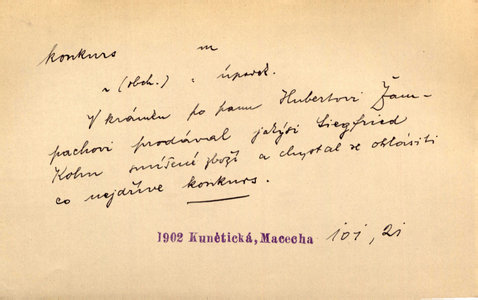 konkurs m
" (obch.) " úpadek.
V krámku po panu Hubertovi Žam-
pachovi prodával jakýsi Siegfried
Kohn smíšené zboží a chystal se ohlásiti
co nejdříve konkurs.
1902 Kunětická, Macecha 101, 21